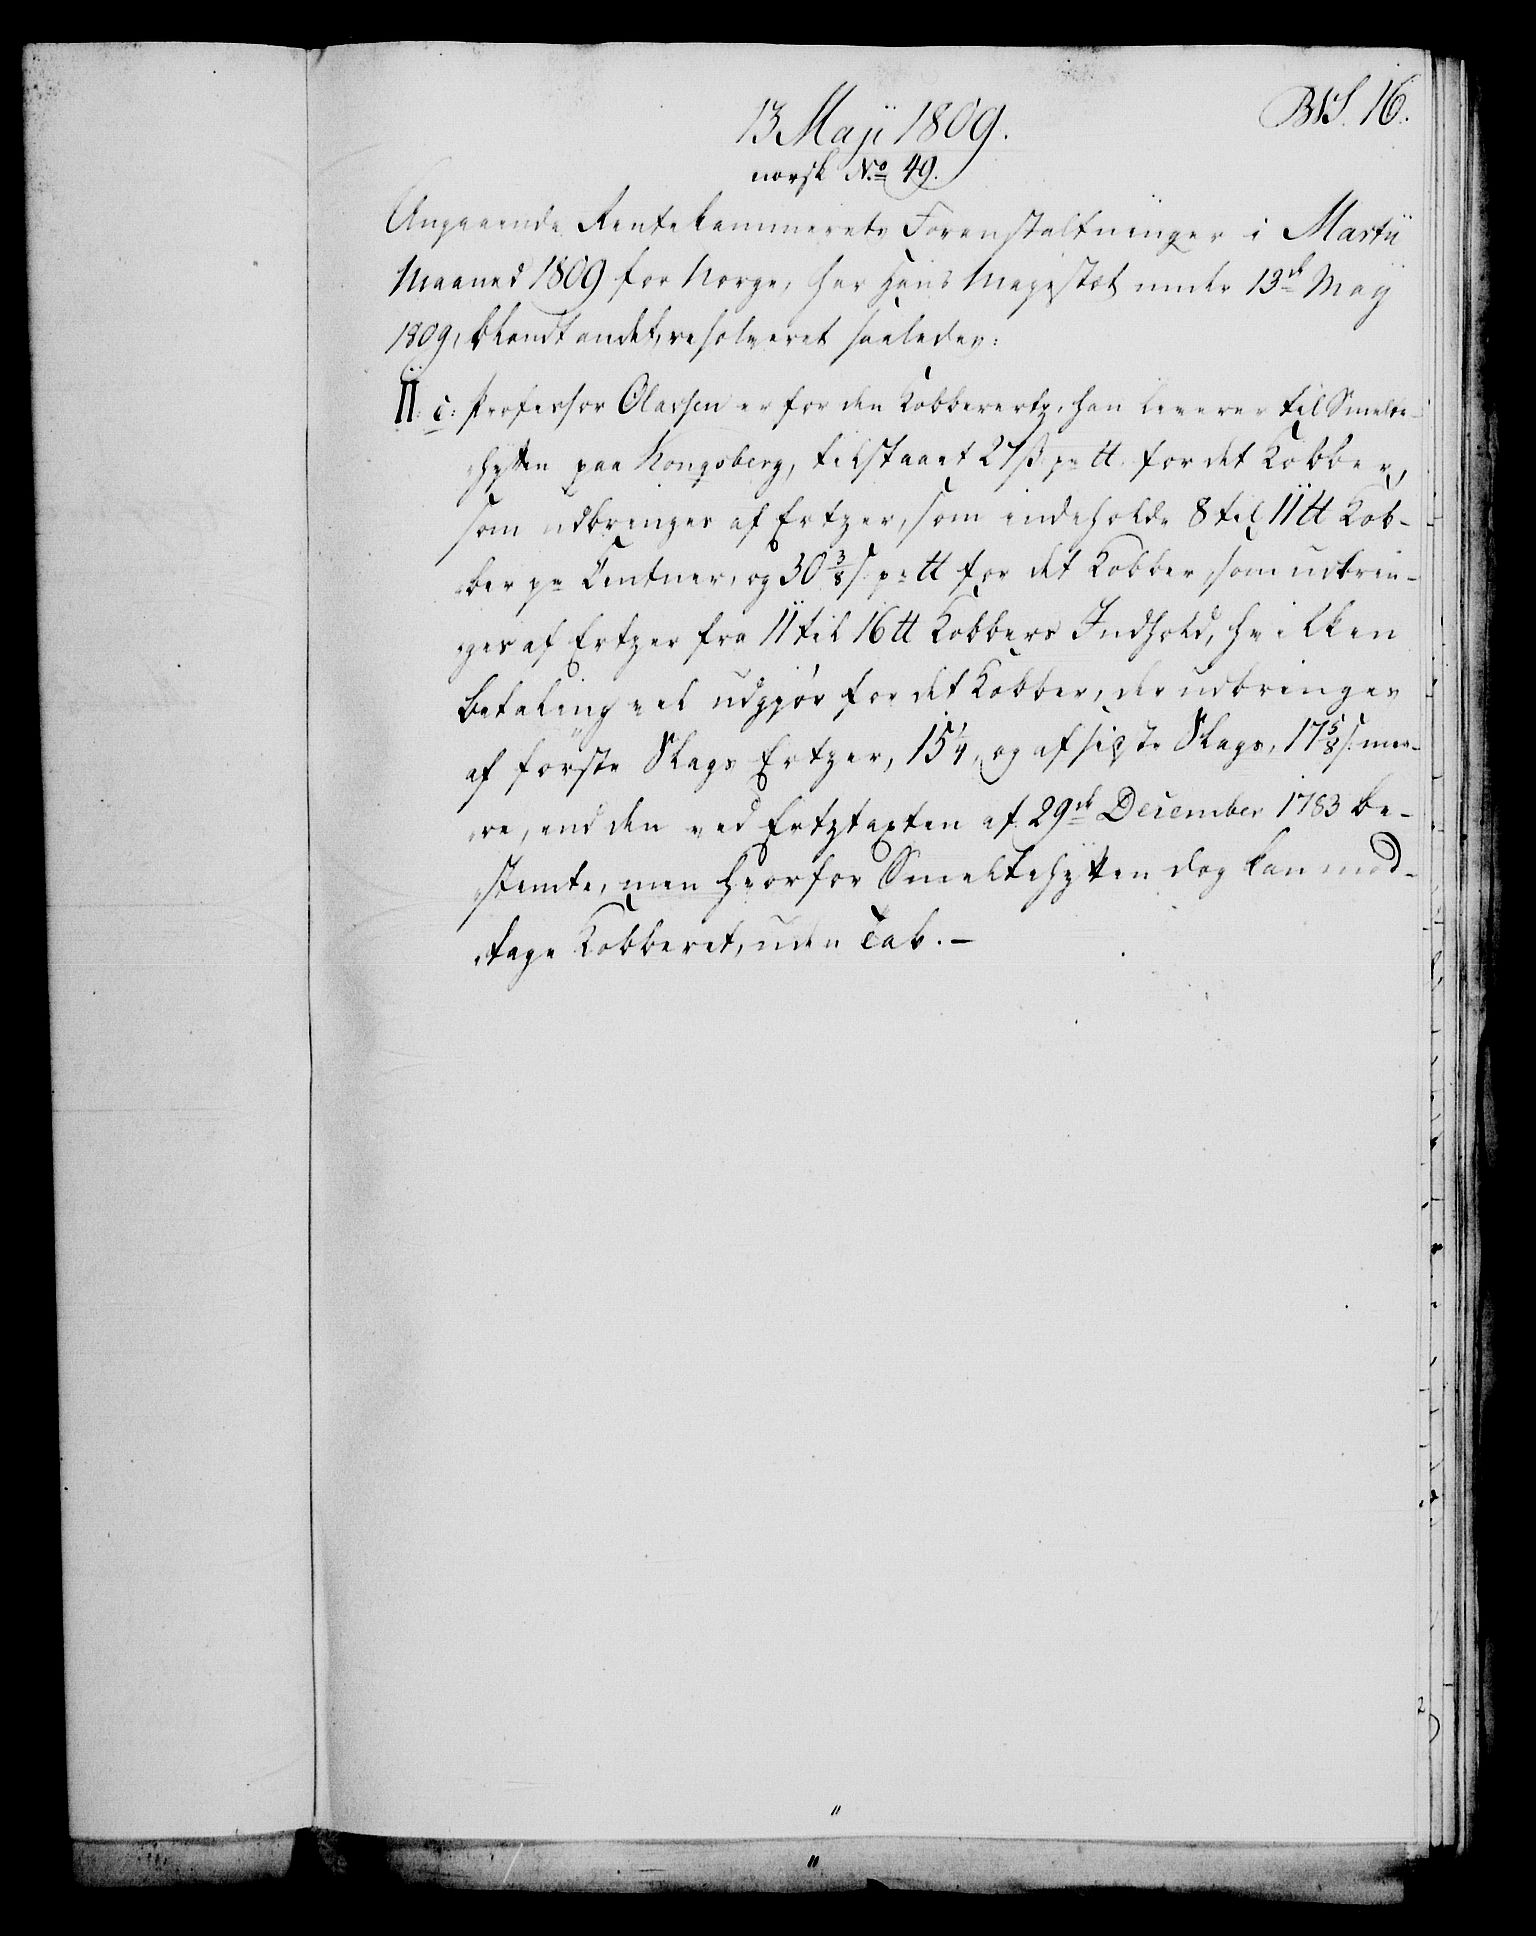 BNS. 16.
13 Maji 1809.
norsk No 49.
Angaaende Rentekammerets Foranstaltninger i Martii
Maaned 1809 for Norge, har Hans Majestæt under 13de Maj
1809, blandt andet, resolveret saaledes:
II. c: Professor Olassen er for den Kobberertz, han leverer til Smelte-
hytten paa Kongsberg, tilstaaet 27 ß pr ℔ for det Kobber,
som udbringes af Ertzer, som indeholde 8 til 11 ℔ Kob-
ber pr Centner, og 30 3/8 ß. pr ℔ for det Kobber som udbrin-
ges af Ertzer fra 11 til 16 ℔ Kobbers Indhold, hvilken
betaling vel udgjør for det Kobber, der udbringes
af første Slags Ertzer, 15 1/4, og af sidste Slags, 17 5/8 ß. mee-
re, end den ved Ertztaxten af 29de December 1783 be-
stemte, men hvorfor Smeltehytten dog kan mod-
tage Kobberet, uden Tab. -